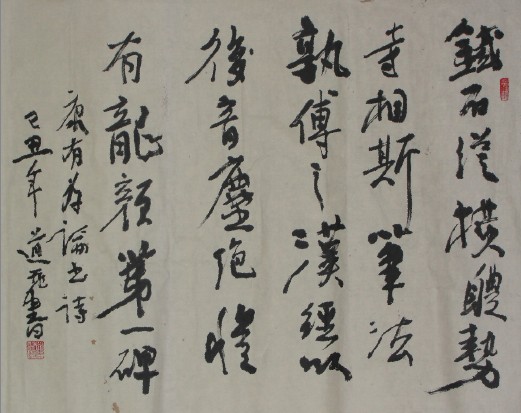 鐵石縱橫體勢
奇相斯筆法
孰傳之漢經以
後音塵絕惟
有龍顏第一碑
康有為論書詩
己丑年 道 書